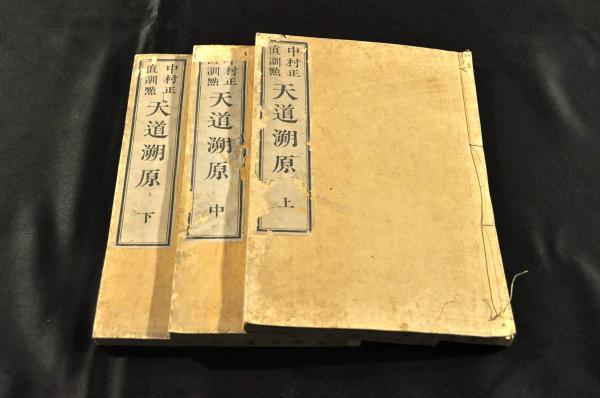 中村正
直訓點
天道溯原
上
中村正
直訓點
天道溯原
中
中村正
直訓點
天道溯原
下